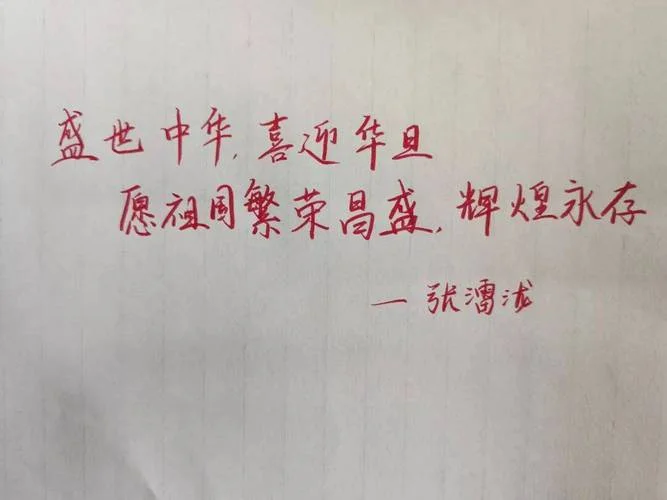 盛世中华,喜迎华旦
愿祖国繁荣昌盛,辉煌永存
— 张澑泷